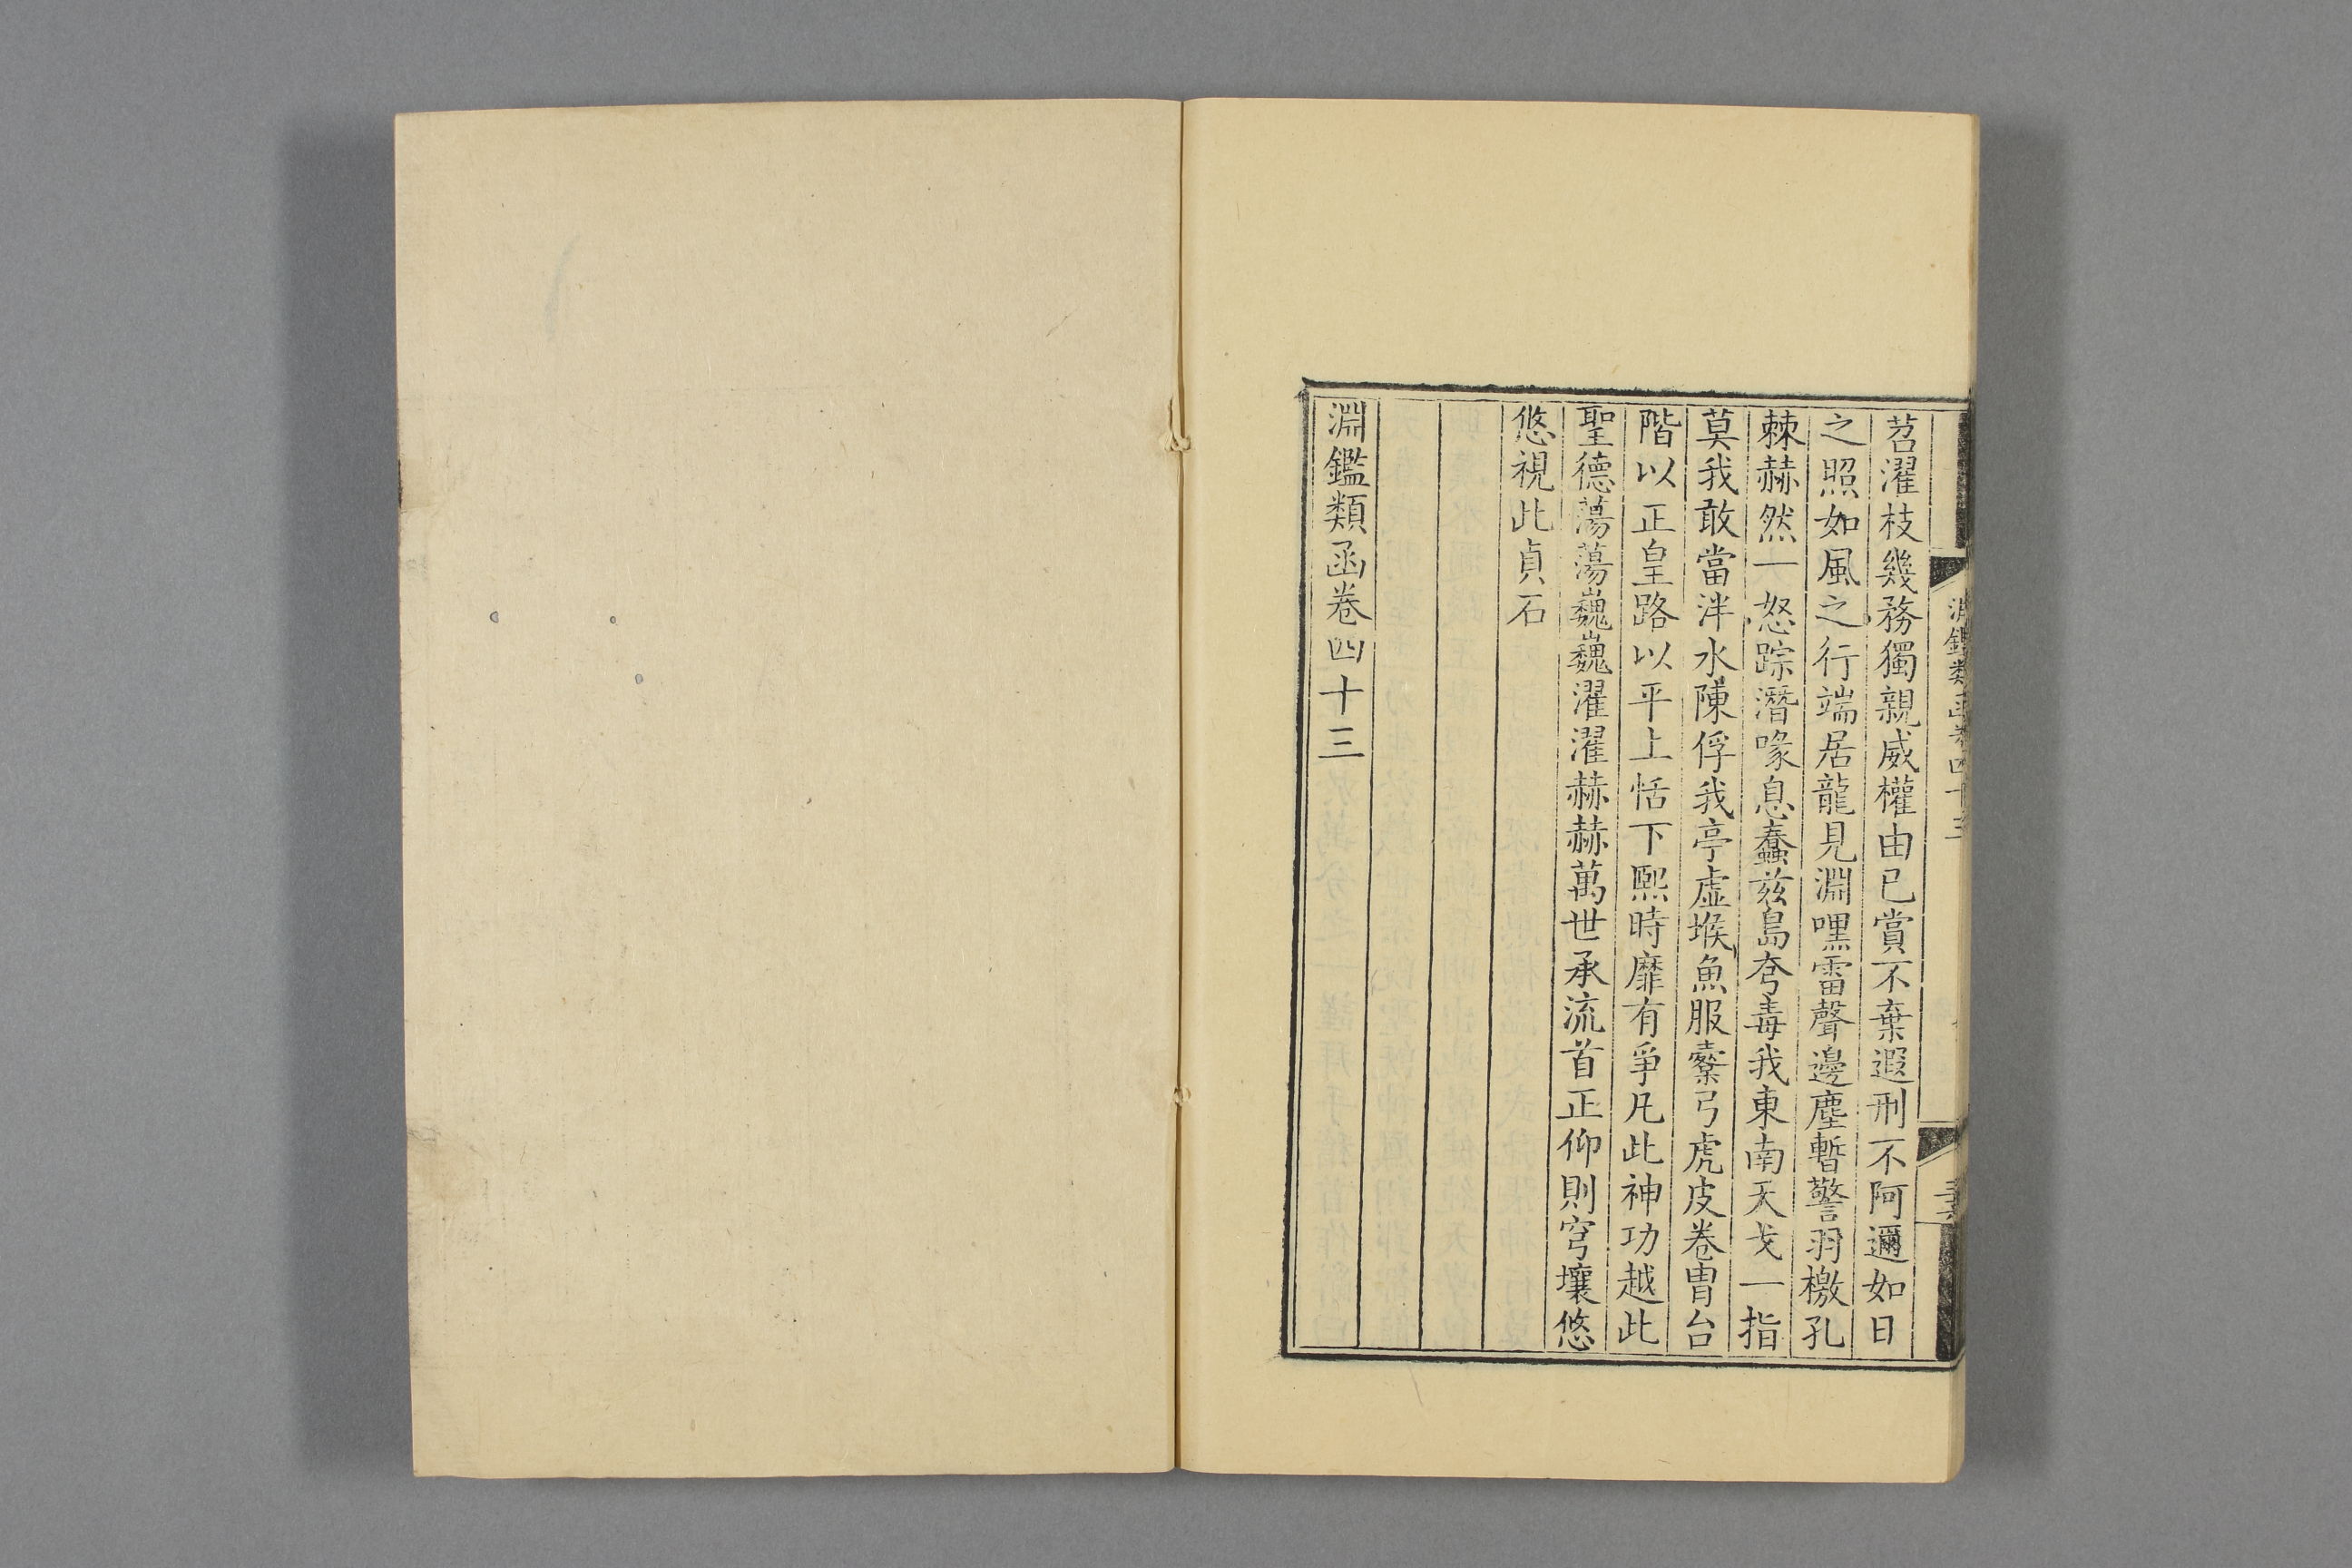 苕濯枝幾務獨親威權由己賞不棄遐刑不阿邇如日
之照如風之行端居龍見淵嘿雷聲邊塵暫警羽檄孔
棘赫然一怒踪潛喙息蠢兹島夸毒我東南天戈一指
莫我敢當泮水陳俘我亭虛堠魚服櫜弓虎皮卷胄台
階以正皇路以平上恬下熙時靡有爭凡此神功越此
聖德蕩蕩巍巍濯濯赫赫萬世承流首正仰則穹壤悠
悠視此貞石
淵鑑類函卷四十三
淵鑑類函卷四十三